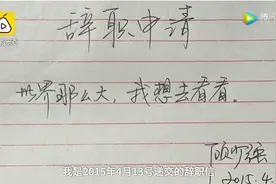 辞职申请
世界那么大，我想去看看。
顾少强
2015.4
我是2015年4月13号递交的辞职信